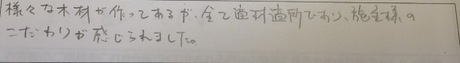 様々な木材が作ってあるが、全て適材適所であり、施主様の
こだわりが感じられました。